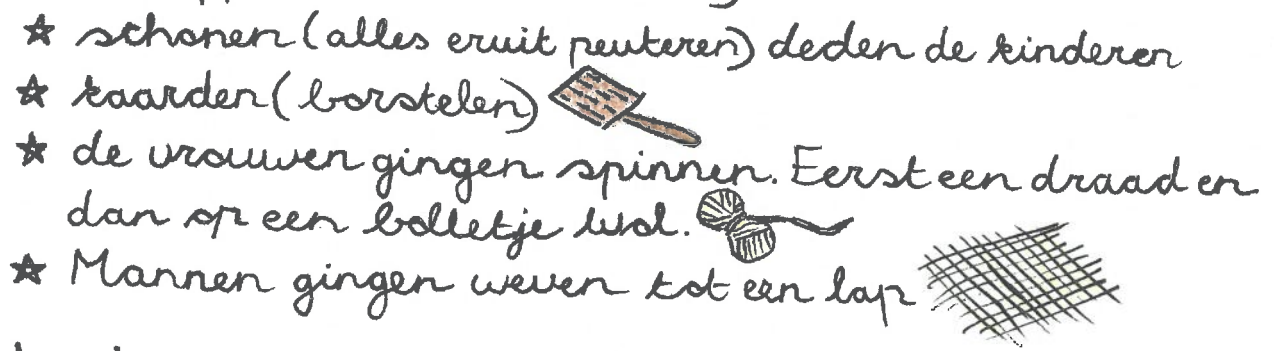 ☆ schonen (alles eruit peuteren) deden de kinderen
☆ kaarden (borstelen)
☆ de vrouwen gingen spinnen. Eerst een draad en
dan op een bolletje wol.
☆ Mannen gingen weven tot een lap